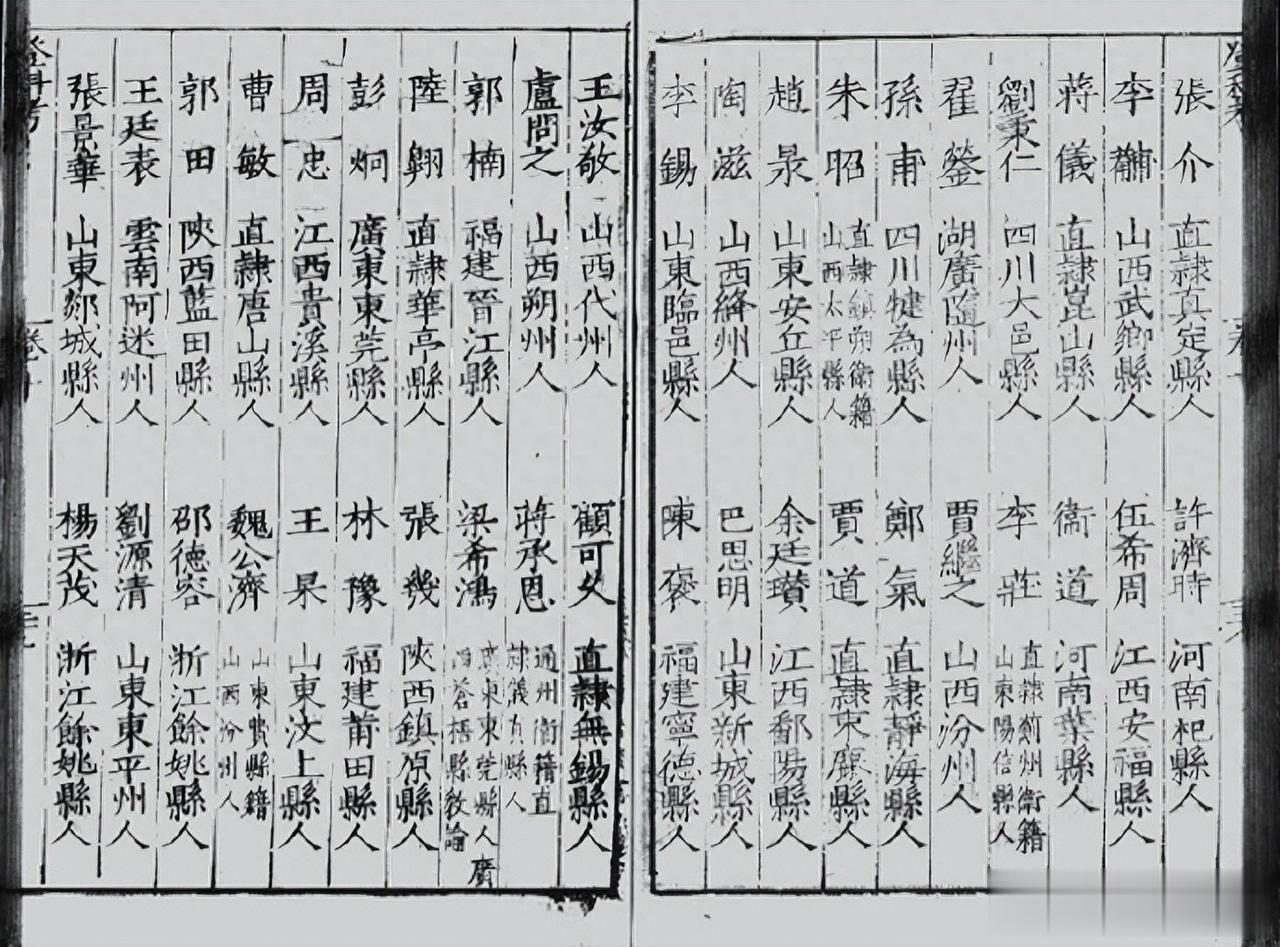 張介 直隸真定縣人 許濟時 河南杞縣人
李黼 山西武鄉縣人 伍希周 江西安福縣人
蔣儀 直隸崑山縣人 衛道 河南葉縣人
劉秉仁 四川大邑縣人 李莊 直隸薊州衛籍山東陽信縣人
翟鎣 湖廣隨州人 賈繼之 山西汾州人
孫甫 四川犍為縣人 鄭氣 直隸靜海縣人
朱昭 直隸鎮朔衛籍山西太平縣人 賈道 直隸束鹿縣人
趙㫤 山東安丘縣人 余廷瓚 江西鄱陽縣人
陶滋 山西絳州人 巴思明 山東新城縣人
李錫 山東臨邑縣人 陳褒 福建寧德縣人
王汝敬 山西代州人 顧可久 直隸無錫縣人
盧問之 山西朔州人 蔣承恩 通州衛籍直隸儀真縣人
郭楠 福建晉江縣人 梁希鴻 廣東東莞縣人廣西蒼梧縣教諭
陸翱 直隸華亭縣人 張幾 陝西鎮原縣人
彭炯 廣東東莞縣人 林豫 福建莆田縣人
周忠 江西貴溪縣人 王杲 山東汶上縣人
曹敏 直隸唐山縣人 魏公濟 山東費縣籍山西汾州人
郭田 陝西藍田縣人 邵德容 浙江餘姚縣人
王廷表 雲南阿迷州人 劉源清 山東東平州人
張景華 山東郯城縣人 楊天茂 浙江餘姚縣人
登科考